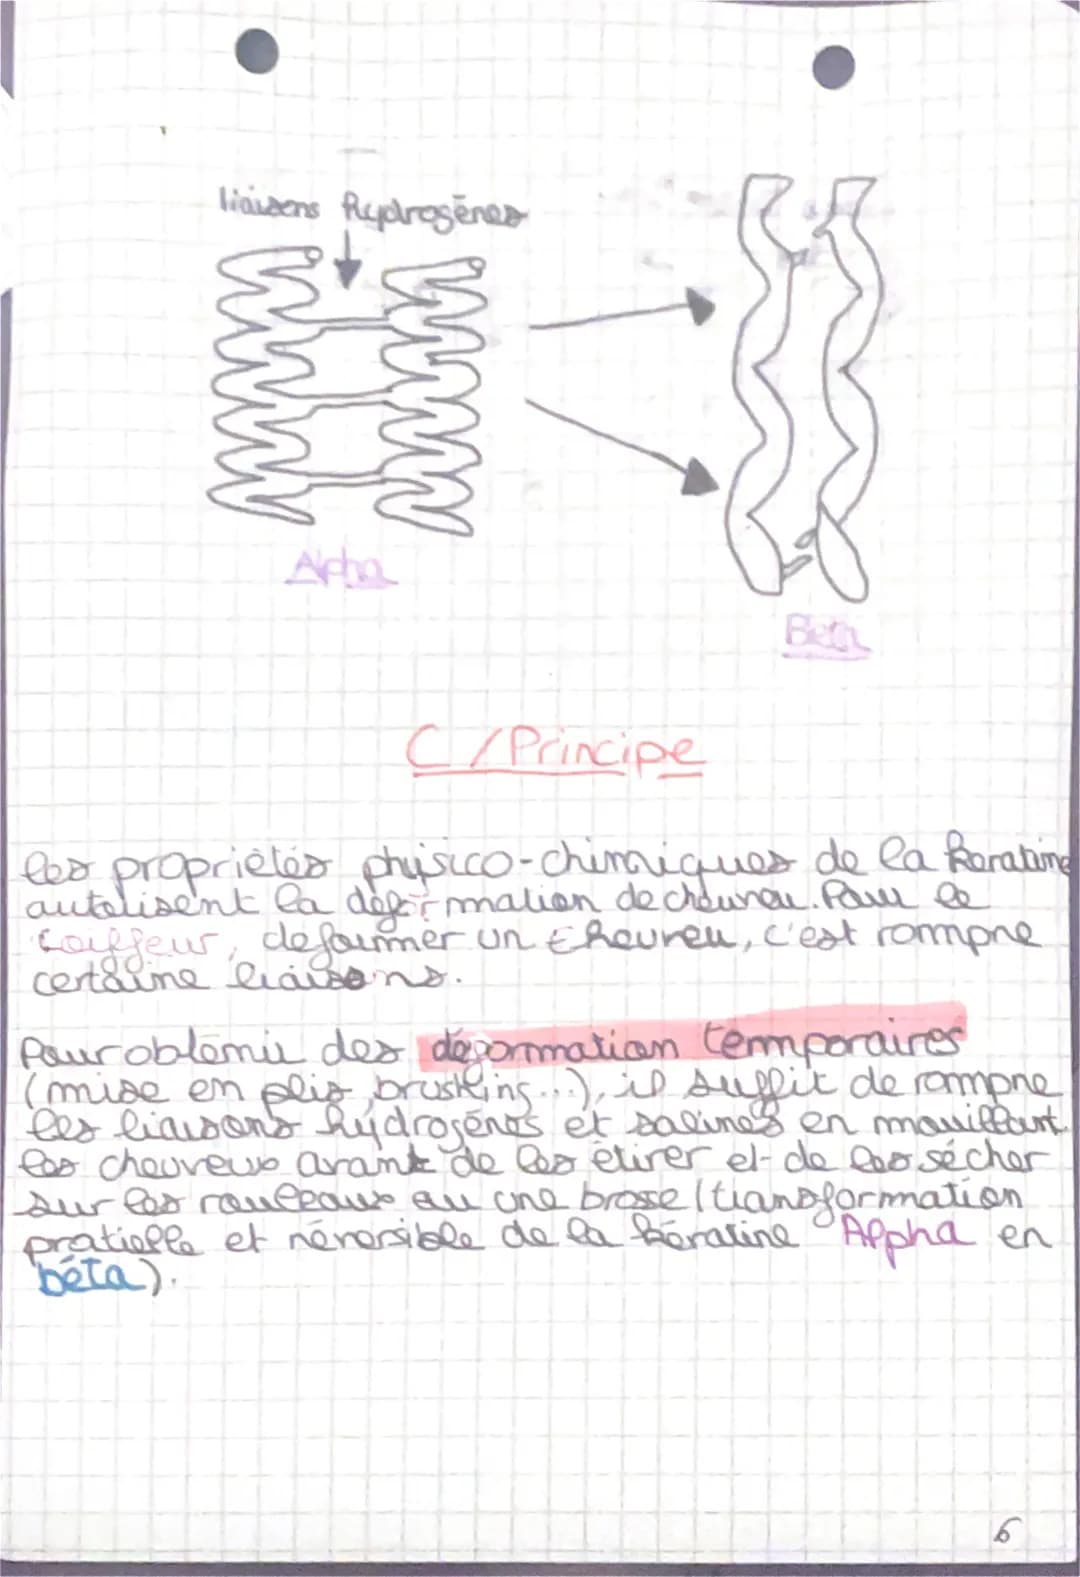 liaisons hydrogènes
Alpha
Beta
C / Principe
les propriétés physico-chimiques de la Keratine
autolisent la déformation de cheuveu. Pour le
coiffeur, deformer un cheuveu, c'est rompre
certaine liaisons.
Pour obtenir des déformation temporaires
(mise en plis, brushing...), il suffit de rompre
les liaisons hydrogénes et salines en mouillant
les cheuveux avant de les étirer et de les sécher
sur les rouleaux ou une brosse (transformation
pratielle et réversible de la kératine Alpha en
béta).
6